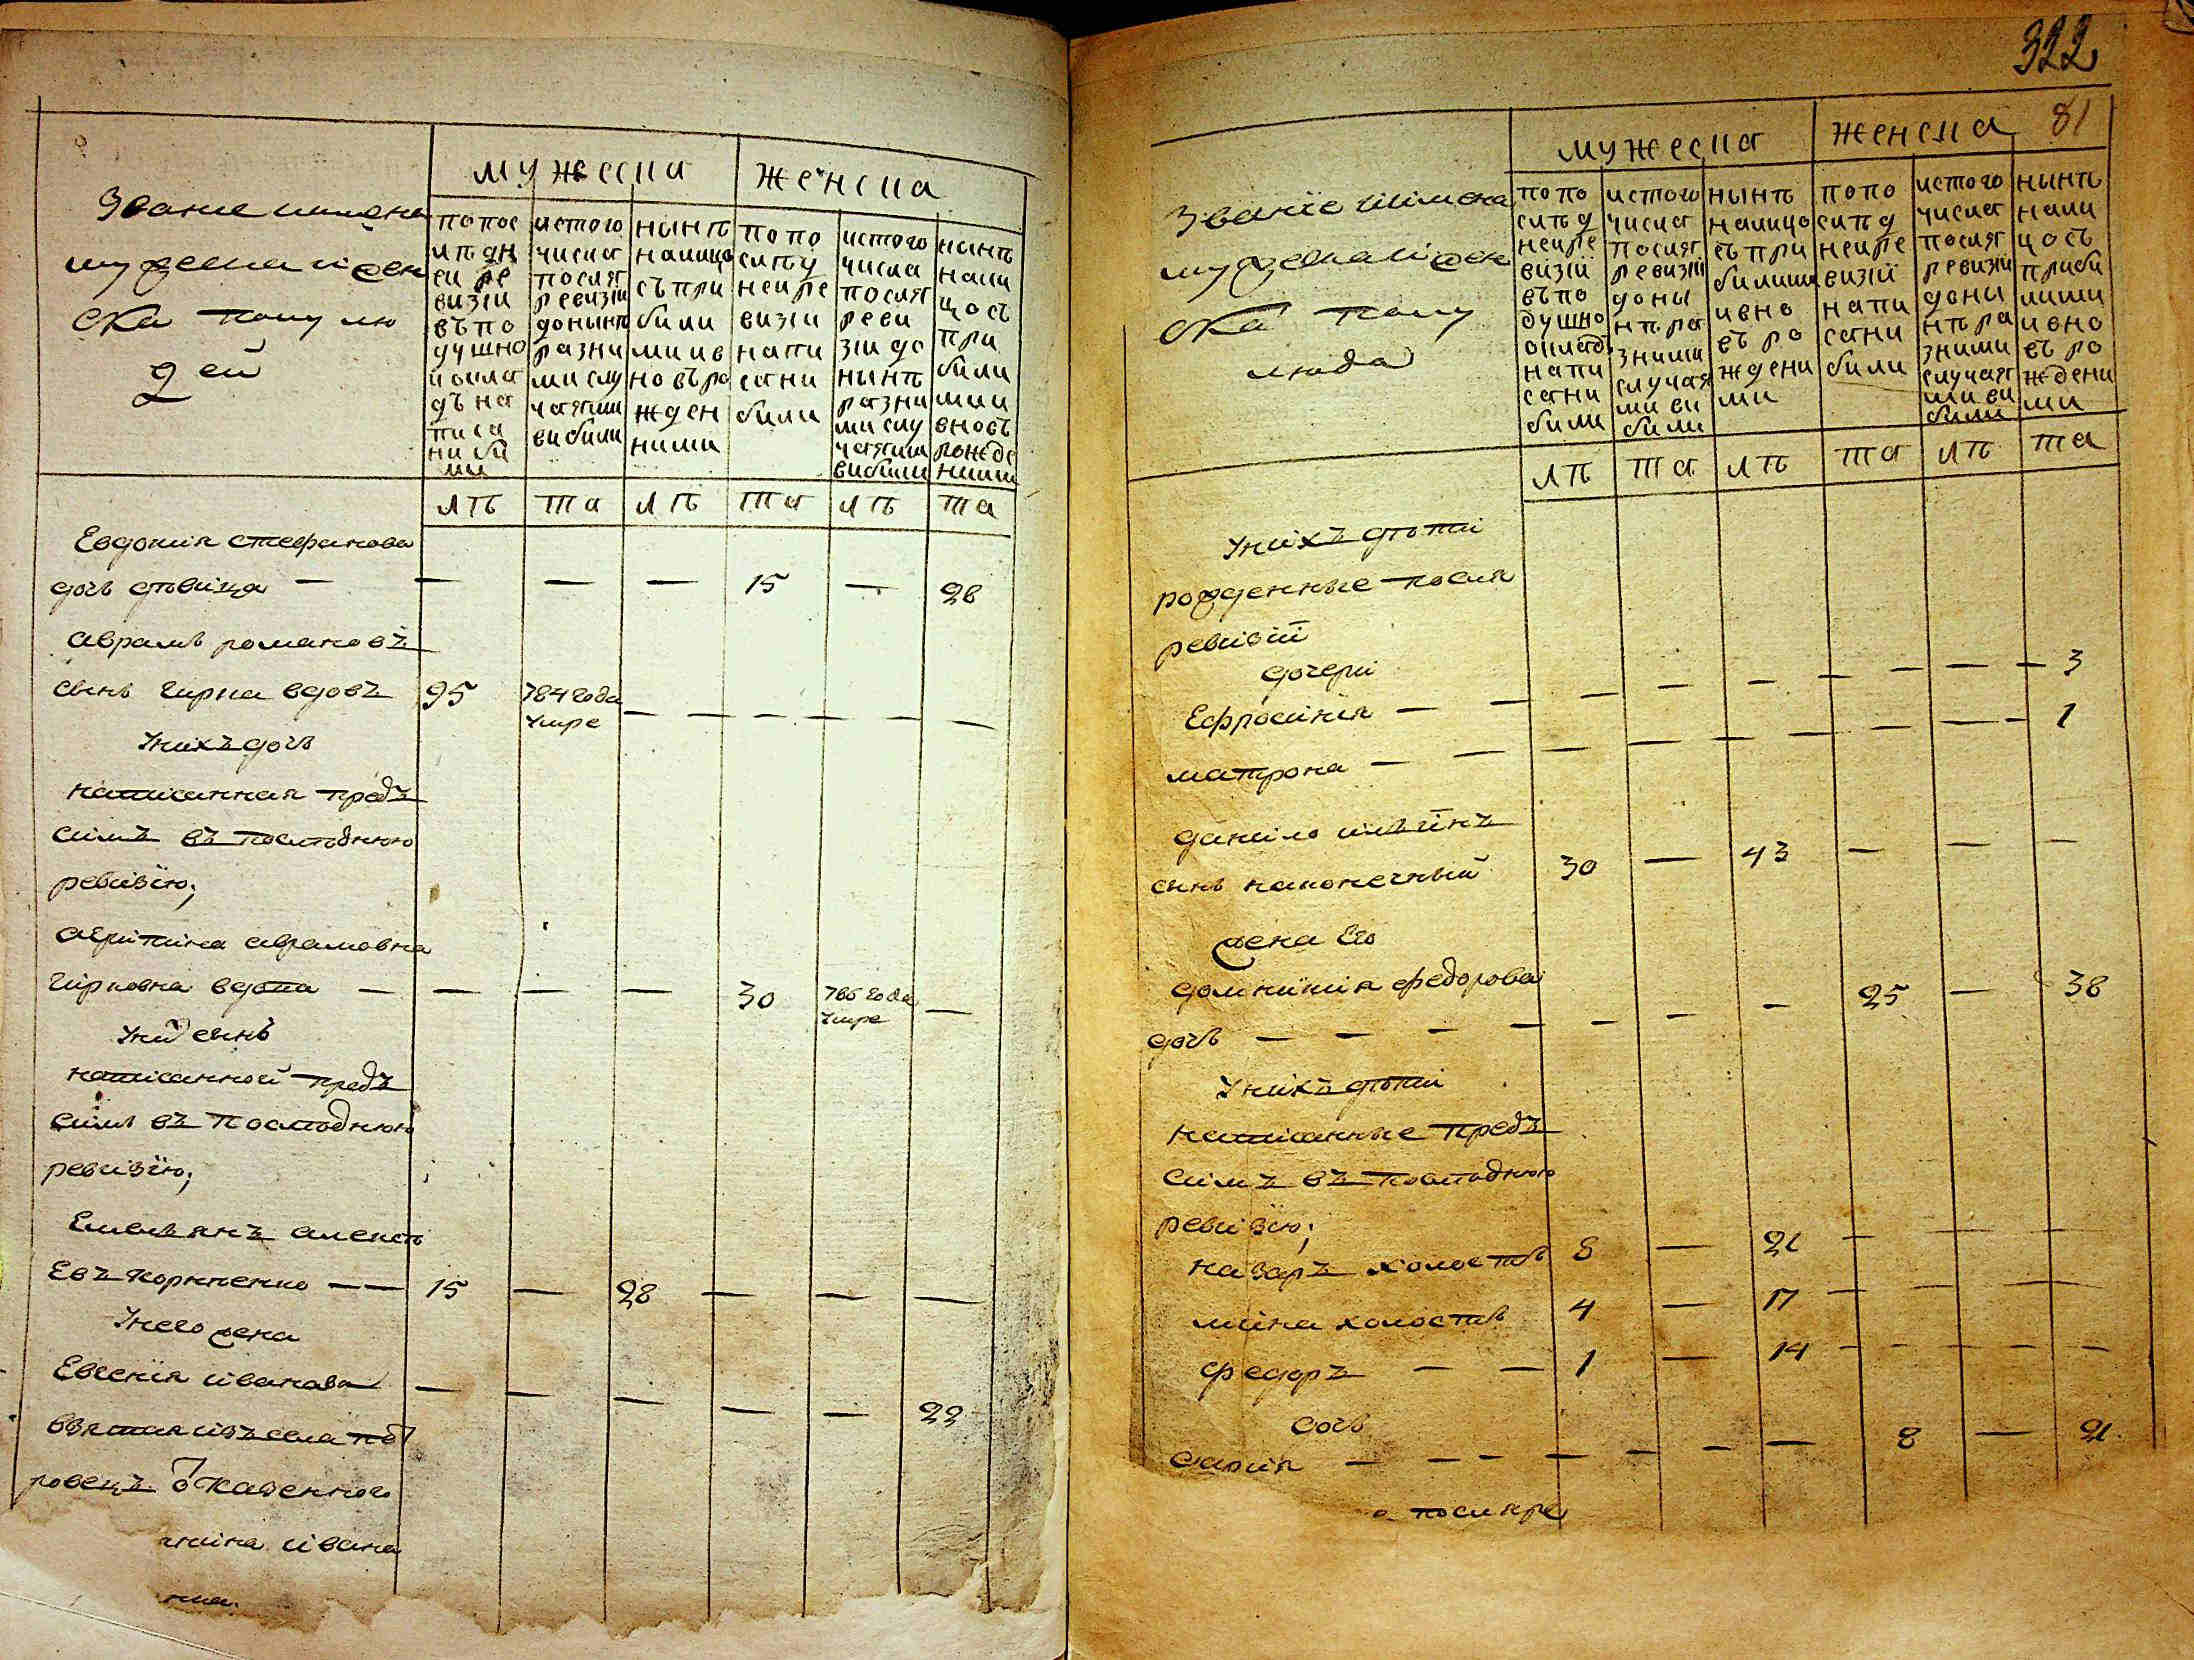 мужеска
женска
Званіе имена
мужеска и жен
ска полу лю
дей
по пос
лѣдн
ей ре
визіи
въ по
душно
й окла
дъ на
писа
ни бы
ли
истого
числа
послѣ
ревизіи
до нынѣ
разны
ми слу
чаями
выбыли
нынѣ
налицо
съ при
былы
ми и в
новъ ро
жден
ными
по по
слѣд
ней ре
визіи
напи
саны
были
истого
числа
послѣ
реви
зіи до
нынѣ
разны
ми слу
чаями
выбыли
нынѣ
нали
цо съ
при
былы
ми и
вновь
рожде
ными
лѣ
та
лѣ
та
лѣ
та
Евдокия стефанова
дочь дѣвица — — — — 15 — 28
аврамъ романовъ
сынъ гирка вдовъ 95 784 года умре — — — —
У нихъ дочь
написанная предъ
симъ въ послѣднюю
ревизїю;
агрипина аврамовна
гирковна вдова — — — — 30 786 года умре —
У ней сынъ
написанной предъ
симъ въ послѣднюю
ревизїю;
Емельянъ алексѣ
евъ корниенко — — 15 — 28 — — —
У него жена
Евгения иванова — — — — — 22
взятая изъ села пѣт
ровецъ от казенного
ина ивана
322
81
мужеска
женска
Званїе имена
мужеска и жен
ска полу
люда
по по
слѣд
ней ре
визіи
въ по
душно
й оклад
напи
саны
были
истого
числа
послѣ
ревизіи
до ны
нѣ ра
зными
случая
ми вы
были
нынѣ
налицо
съ при
былыми
и вно
въ ро
ждены
ми
по по
слѣд
ней ре
визіи
напи
саны
были
истого
числа
послѣ
ревизіи
до ны
нѣ ра
зными
случая
ми вы
были
нынѣ
нали
цо съ
прибы
лыми
и вно
въ ро
ждены
ми
лѣ
та
лѣ
та
лѣ
та
У нихъ дѣти
рожденные после
ревизїй
дочери
Ефросиния — — — — — — — — — 3
матрона — — — — — — — — — 1
данило ильинъ
сынъ наконечный 30 — 43 — — —
жена Его
домникия федорова
дочь — — — — — — — 25 — 38
У нихъ дѣти
написанные предъ
симъ въ послѣднюю
ревизїю;
назаръ холостъ 8 — 21 — — —
мина холостъ 4 — 17 — — —
федоръ — — 1 — 14 — — — — —
дочь
дария — — — — — — — 8 — 21
послѣ ре